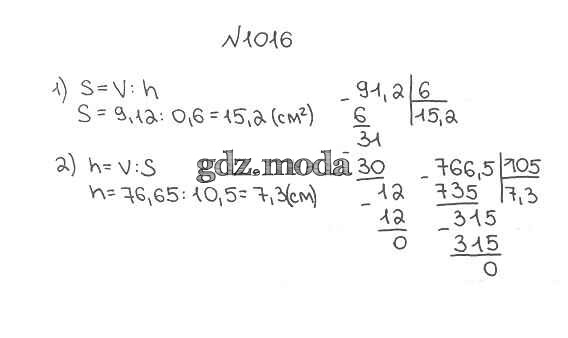 №1016
1) S=V:h
S=9,12:0,6=15,2(см²)
91,2|6
-6 15,2
31
-30
12
-12
0
2) h=V:S
h=76,65:10,5=7,3(см)
766,5|105
-735 7,3
315
-315
0
gdz.moda